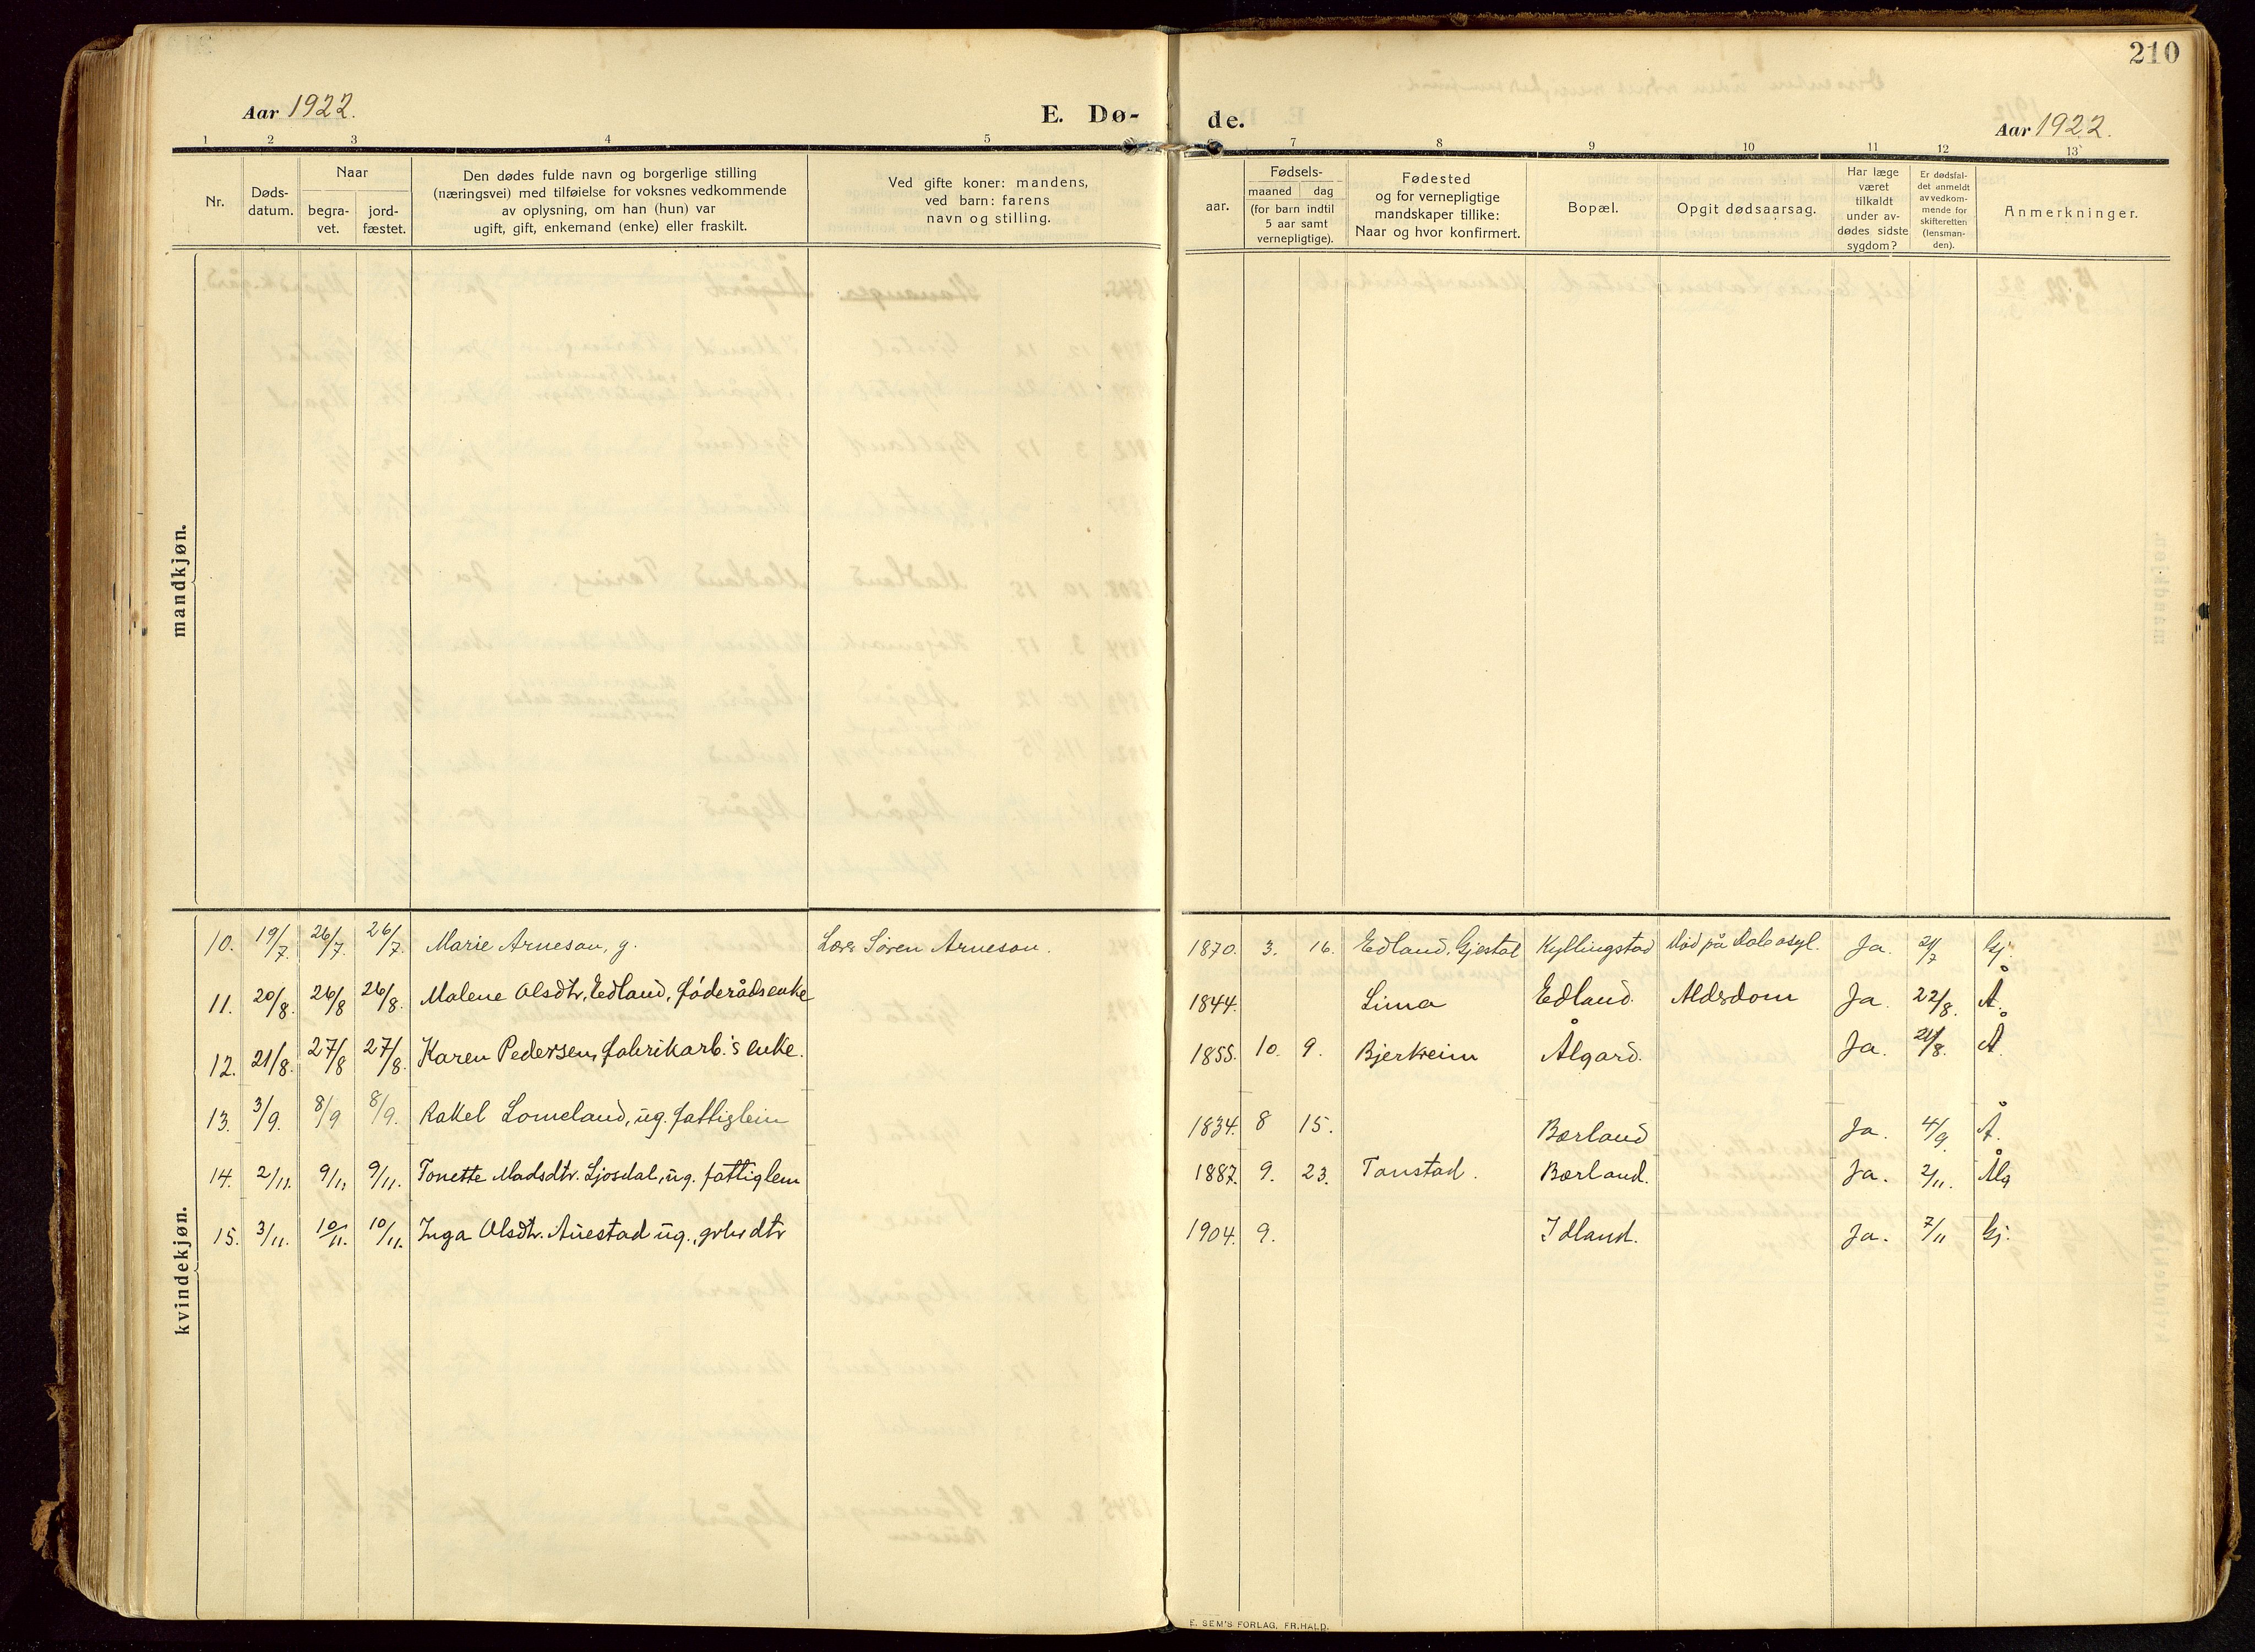 210
Aar 1922.
E. Dø-
de.
Aar 1922.
1 2 3 4 5
7 8 9 10 11 12 13
Nr.
Døds-
datum.
Naar
begra-
vet.
jord-
fæstet.
Den dødes fulde navn og borgerlige stilling
(næringsvei) med tilføielse for voksnes vedkommende
av oplysning, om han (hun) var
ugift, gift, enkemand (enke) eller fraskilt.
Ved gifte koner: mandens,
ved barn: farens
navn og stilling.
aar.
Fødsels-
maaned dag
(for barn indtil
5 aar samt
vernepligtige).
Fødested
og for vernepligtige
mandskaper tillike:
Naar og hvor konfirmert.
Bopæl.
Opgit dødsaarsag.
Har læge
været
tilkaldt
under av-
dødes sidste
sygdom?
Er dødsfal-
det anmeldt
av vedkom-
mende for
skifteretten
(lensman-
den).
Anmerkninger.
mandkjøn.
kvindekjøn.
10. 19/7. 26/7. 26/7. Marie Arneson, g. Lærer Søren Arneson. 1870. 3. 16. Edland, Gjestal Kyllingstad Død på Ja. 21/7 Gj.
11. 20/8. 26/8 26/8. Malene Olsdtr. Edland, føderådsenke 1844. Lima Edland. Alderdom Ja. 22/8. Å.
12. 21/8. 27/8 27/8. Karen Pedersen, fabrikarb.'s enke. 1855. 10. 9. Bjerkreim Ålgård. Ja. 21/8. Å.
13. 3/9. 8/9 8/9. Rakel Lomeland, ug. fattiglem 1834. 8 15. Bærland Ja. 4/9. Å.
14. 2/11. 9/11 9/11. Tonette Madsdtr. Ljosdal, ug. fattiglem 1887. 9. 23. Tanstad. Bærland. Ja. 2/11. Ålg
15. 3/11. 10/11. 10/11. Inga Olsdtr. Auestad ug., grbr dtr 1904. 9. Idland. Ja. 7/11 Gj.
E. SEM'S FORLAG, FR.HALD.